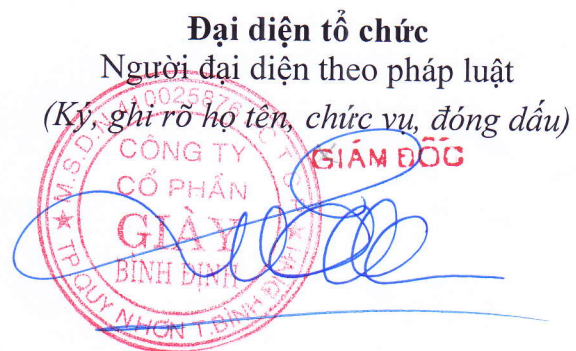 Đại diện tổ chức
Người đại diện theo pháp luật
(Ký, ghi rõ họ tên, chức vụ, đóng dấu)
GIÁM ĐỐC
M.S.D.N:
CÔNG TY
CỔ PHẦN
GIÀY
BÌNH ĐỊNH
TP.QUY NHƠN T.BÌNH ĐỊNH